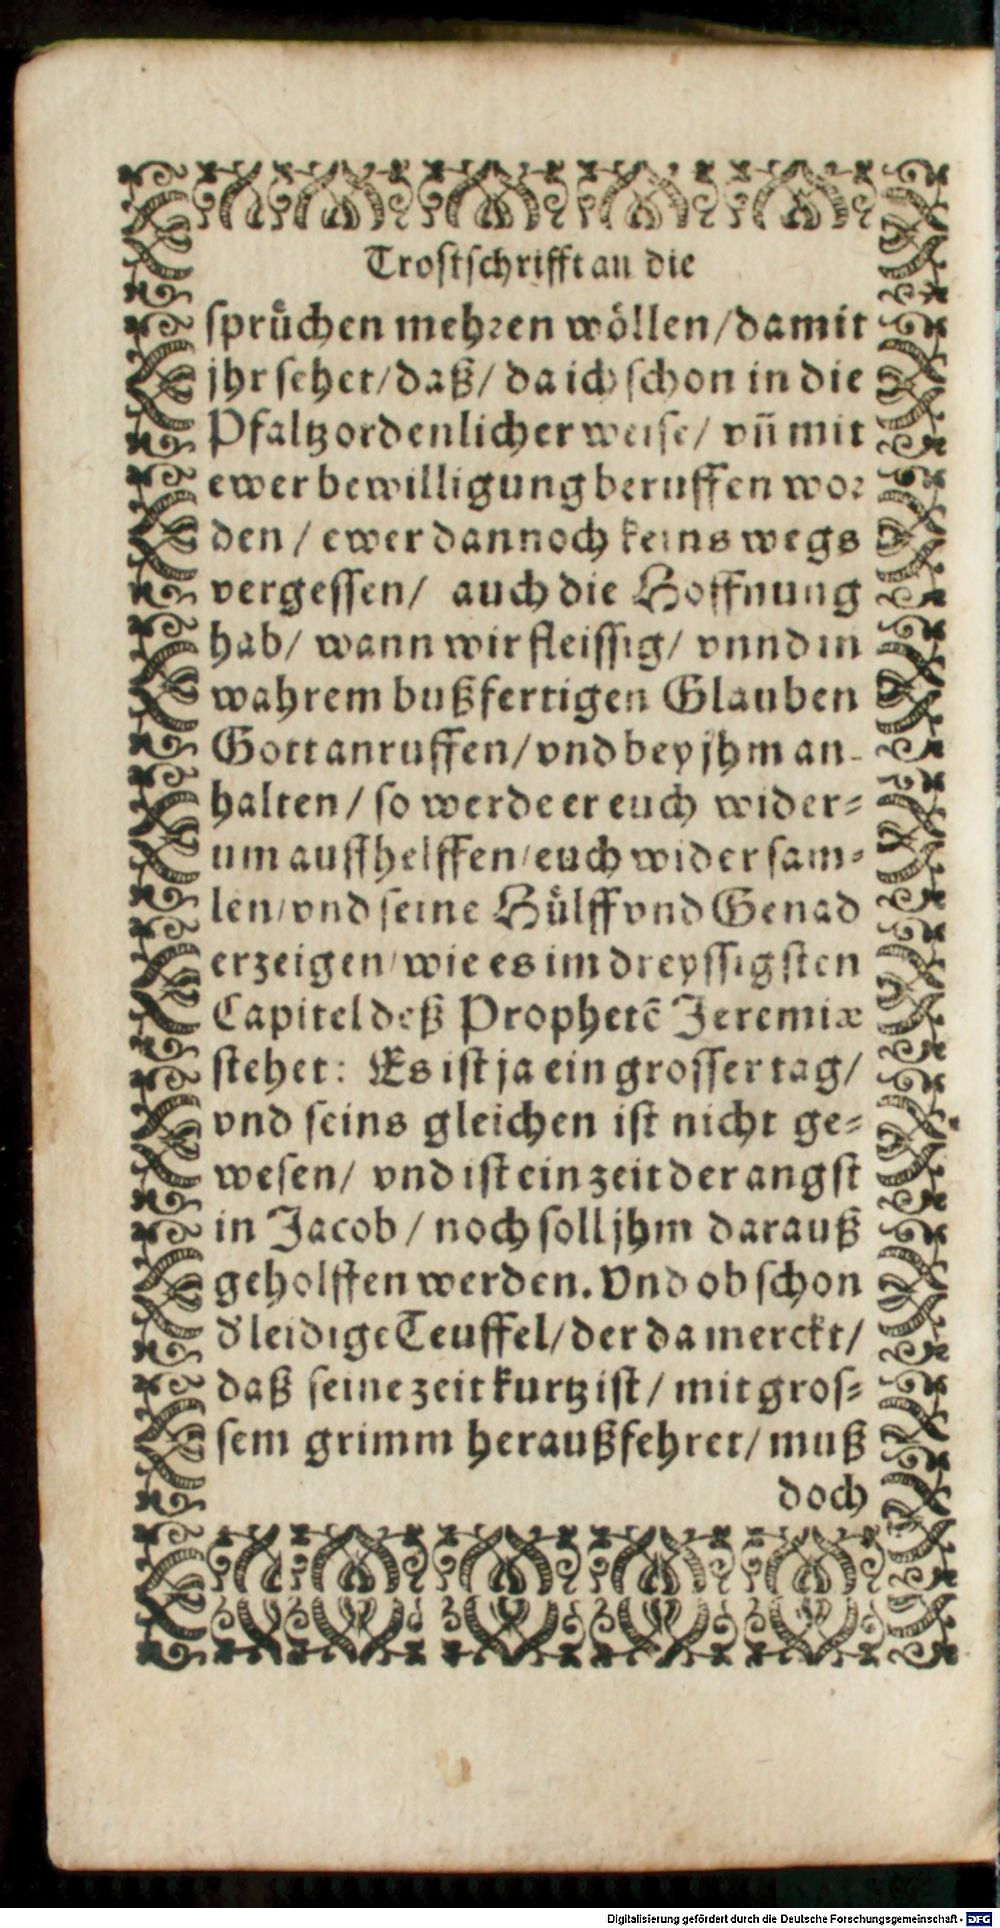 Trostschrifft an die
sprüchen mehren wöllen/ damit
jhr sehet/ daß/ da ich schon in die
Pfaltz ordenlicher weise/ vñ mit
ewer bewilligung beruffen wor
den/ ewer dannoch keins wegs
vergessen/ auch die Hoffnung
hab/ wann wir fleissig/ vnnd in
wahrem bußfertigen Glauben
Gott anruffen/ vnd bey jhm an-
halten/ so werde er euch wider-
um auffhelffen/ euch wider sam-
len/ vnd seine Hülff vnd Genad
erzeigen/ wie es im dreyssigsten
Capitel deß Prophetē Jeremiæ
stehet: Es ist ja ein grosser tag/
vnd seins gleichen ist nicht ge-
wesen/ vnd ist ein zeit der angst
in Jacob/ noch soll jhm darauß
geholffen werden. Vnd ob schon
d' leidige Teuffel/ der da merckt/
daß seine zeit kurtz ist/ mit gros-
sem grimm heraußfehret/ muß
doch
Digitalisierung gefördert durch die Deutsche Forschungsgemeinschaft - DFG